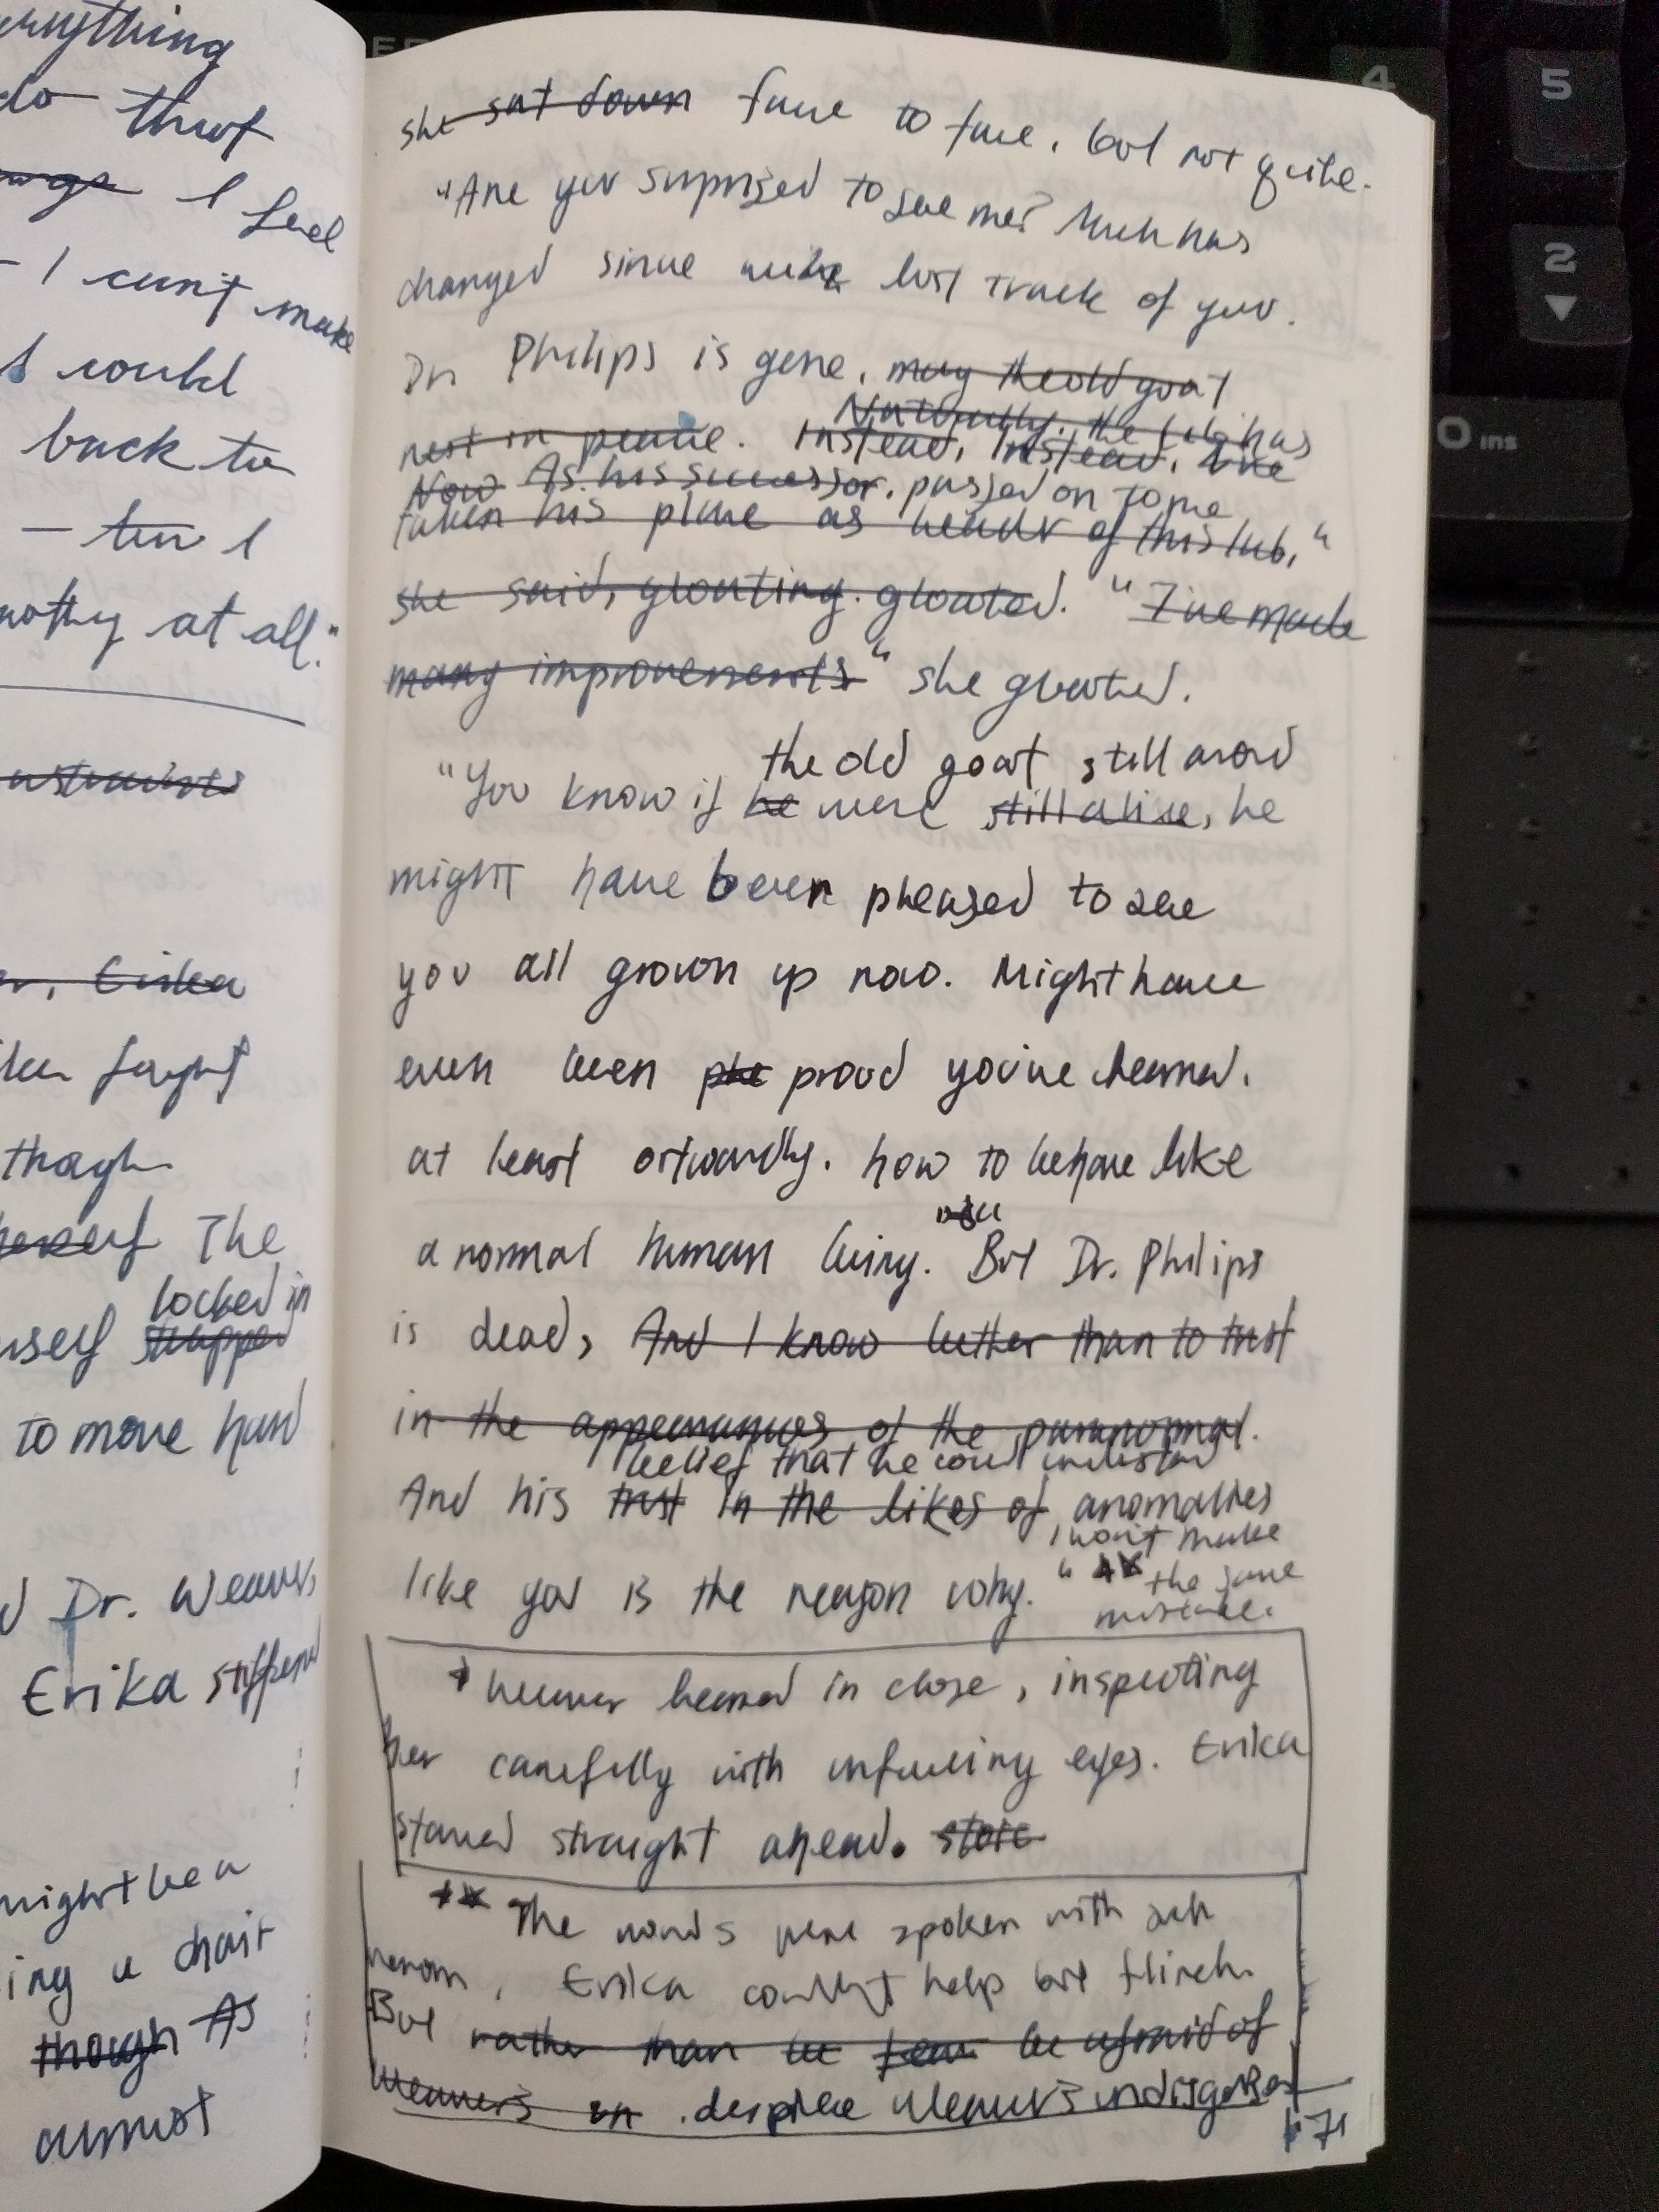 everything
do that
I feel
- I can't make
I could
back to
- ten I
at all."
Erika
fought
though
herself The
locked in
trapped
to move hand
Dr. Weaver
Erika stiffened
might be a
ing a chair
though As
almost
she sat down face to face, but not quite.
"Are you surprised to see me? Much has
changed since we lost track of you.
Dr Philips is gone, may the old goat
Naturally, the job has
rest in peace. Instead, Instead, I've
Now As his successor, passed on to me
taken his place as header of this lab,"
she said, gloating. gloated. "I've made
many improvements" she gloated.
the old goat still around
"You know if he were still alive, he
might have been pleased to see
you all grown up now. Might have
even been ple proud you've learned,
at least outwardly, how to behave like
a normal human being. But Dr. Philips
is dead, And I know better than to trust
in the appearances of the paranormal.
belief that he could understand
And his trust in the likes of anomalies
I won't make
like you is the reason why." ** the same
mistake.
* Weaver leaned in close, inspecting
her carefully with unfeeling eyes. Erika
stared straight ahead. stoic
** The words were spoken with such
venom, Erika couldn't help but flinch.
But rather than be fear be afraid of
Weaver's in despite Weaver's
71
4
5
2
0 ins